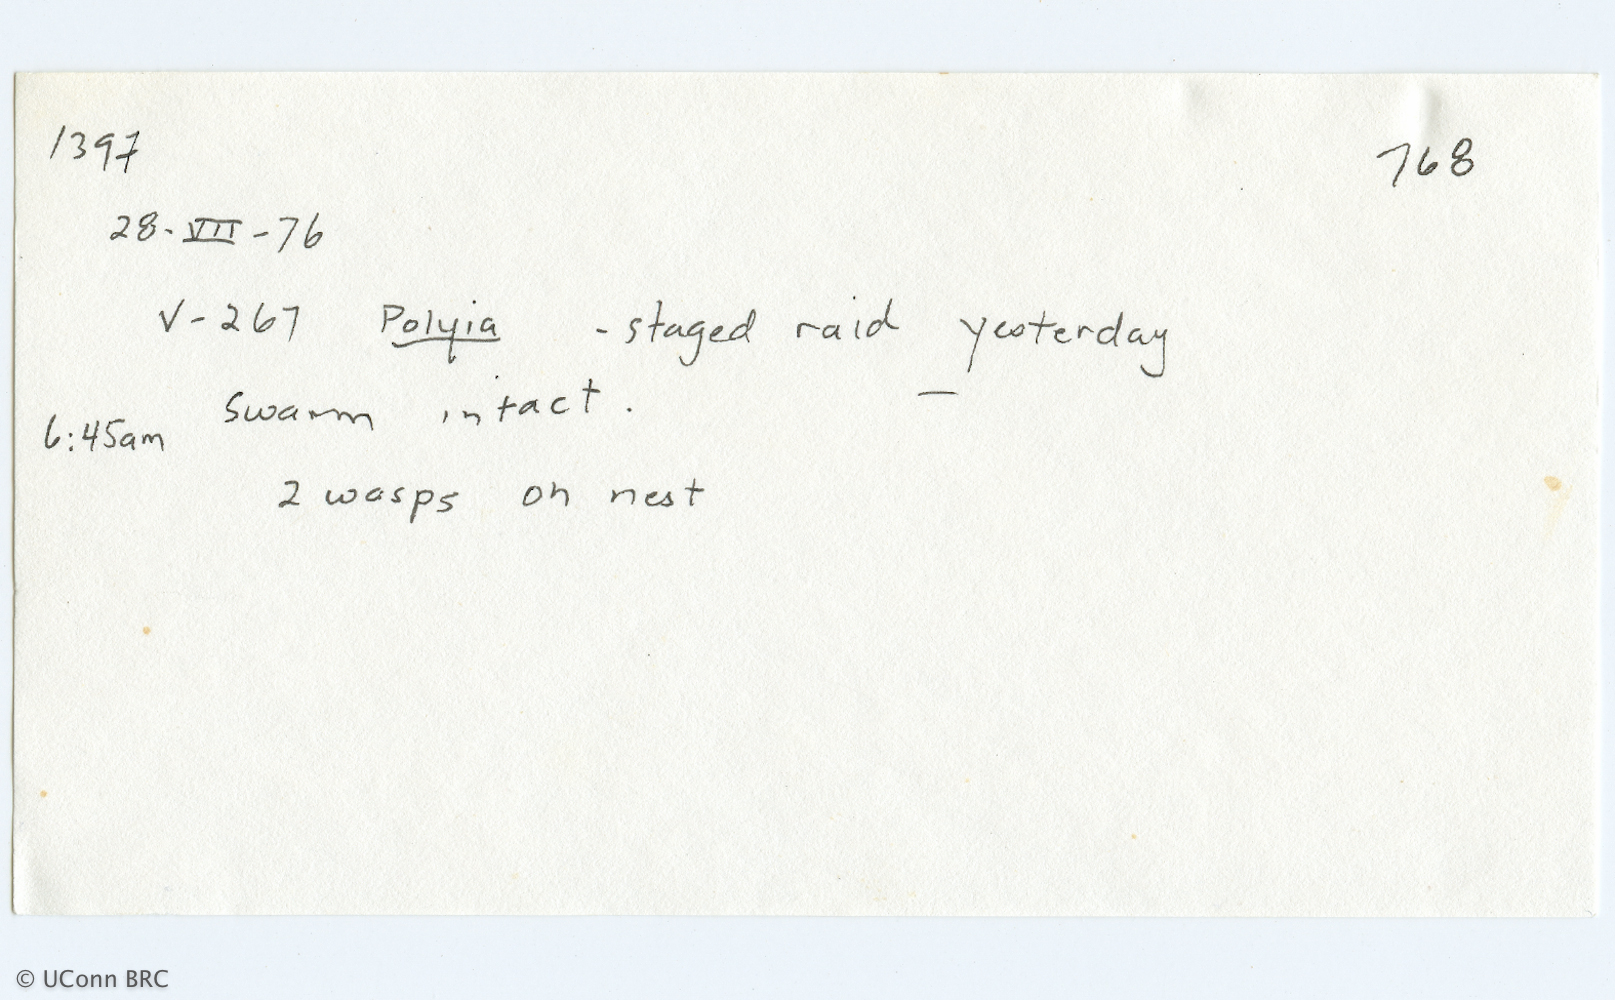 1397
768
28-VII-76
V-267 Polyia - staged raid yesterday
Swarm intact. —
6:45am
2 wasps on nest
© UConn BRC